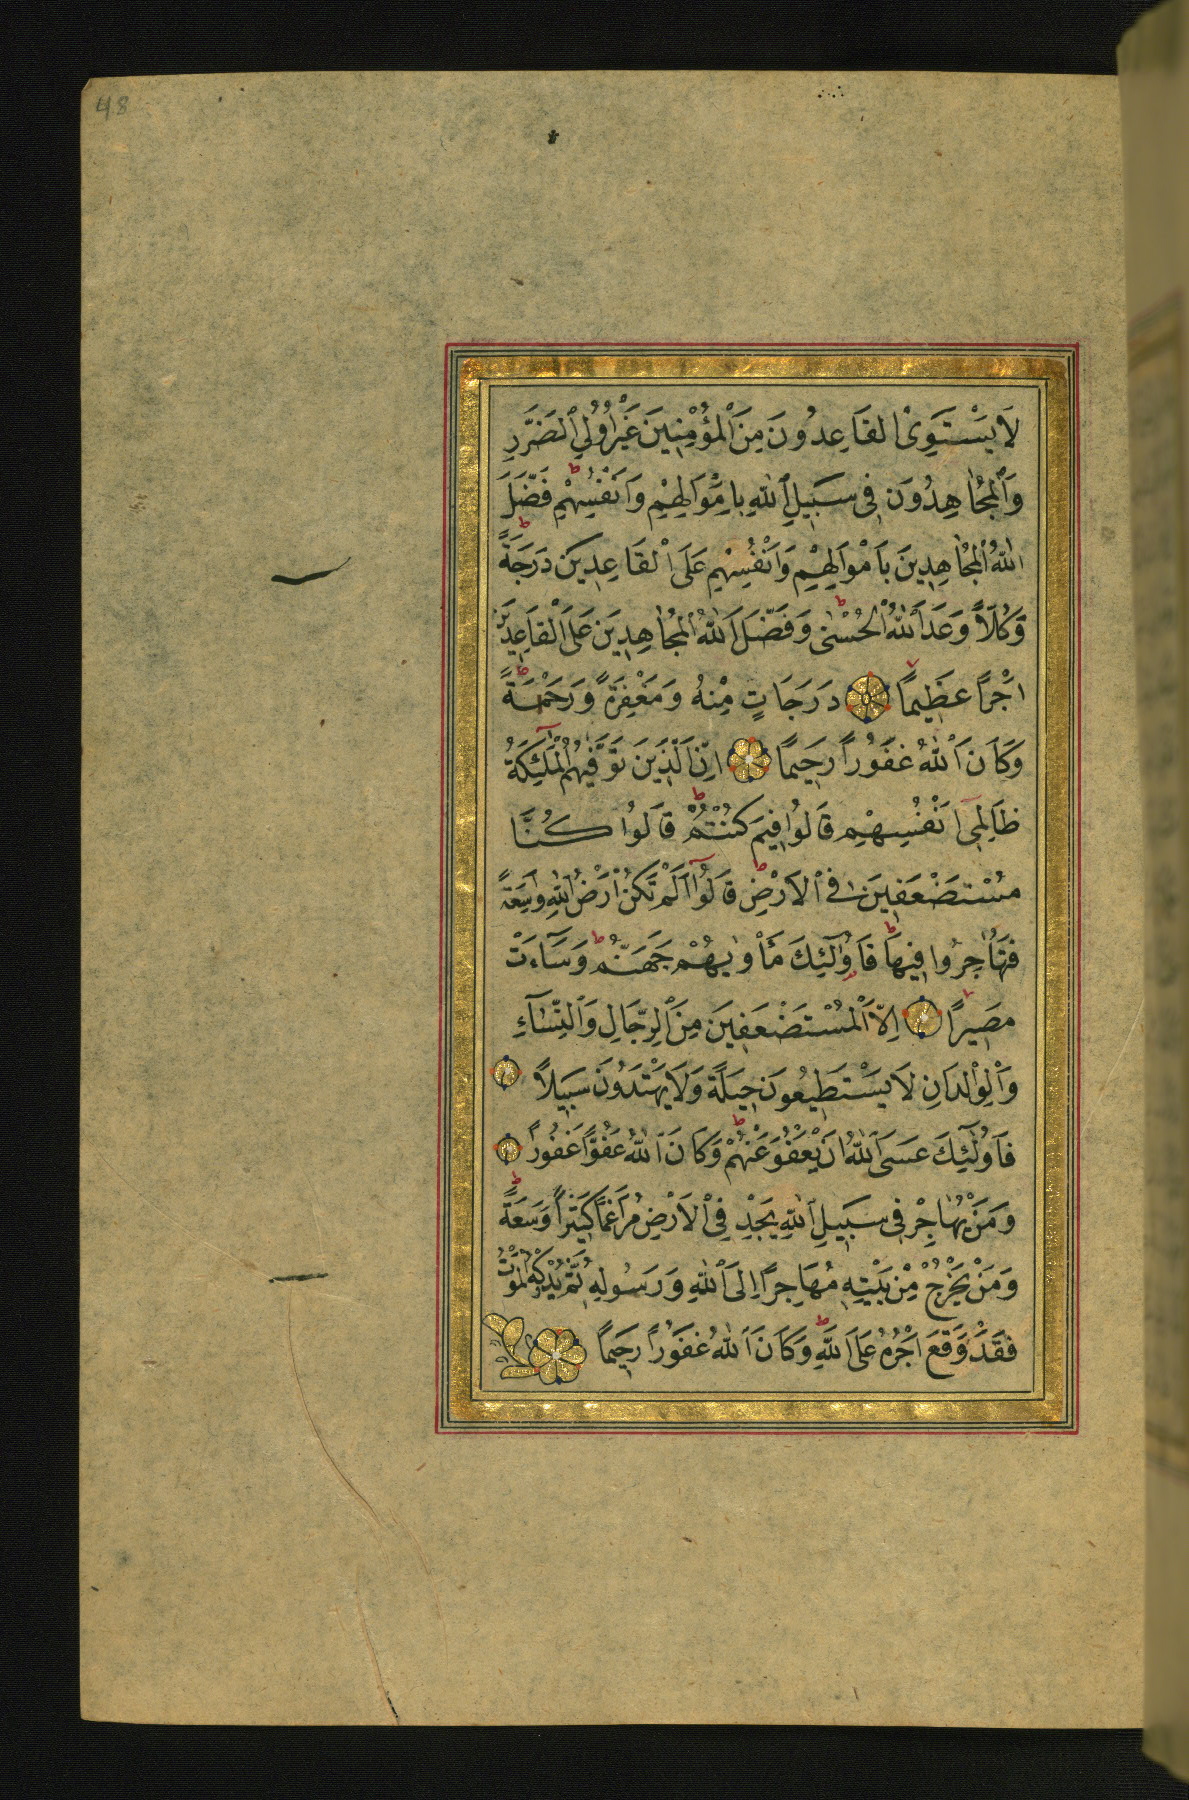 48
لَا يَسْتَوِى الْقَاعِدُونَ مِنَ الْمُؤْمِنِينَ غَيْرُ اُولِي الضَّرَرِ
وَالْمُجَاهِدُونَ فِى سَبِيلِ اللهِ بِاَمْوَالِهِمْ وَاَنْفُسِهِمْ ط فَضَّلَ
اللهُ الْمُجَاهِدِينَ بِاَمْوَالِهِمْ وَاَنْفُسِهِمْ عَلَى الْقَاعِدِينَ دَرَجَةً ط
وَكُلًّا وَعَدَ اللهُ الْحُسْنٰى ط وَفَضَّلَ اللهُ الْمُجَاهِدِينَ عَلَى الْقَاعِدِينَ
اَجْرًا عَظِيمًا دَرَجَاتٍ مِنْهُ وَمَغْفِرَةً وَرَحْمَةً ط
وَكَانَ اللهُ غَفُورًا رَحِيمًا اِنَّ الَّذِينَ تَوَفّٰيهُمُ الْمَلٰٓئِكَةُ
ظَالِمِىٓ اَنْفُسِهِمْ قَالُوا فِيمَ كُنْتُمْ ط قَالُوا كُنَّا
مُسْتَضْعَفِينَ فِى الْاَرْضِ ط قَالُوٓا اَلَمْ تَكُنْ اَرْضُ اللهِ وَاسِعَةً
فَتُهَاجِرُوا فِيهَا ط فَاُولٰٓئِكَ مَاْوٰيهُمْ جَهَنَّمُ ط وَسَآءَتْ
مَصِيرًا اِلَّا الْمُسْتَضْعَفِينَ مِنَ الرِّجَالِ وَالنِّسَآءِ
وَالْوِلْدَانِ لَا يَسْتَطِيعُونَ حِيلَةً وَلَا يَهْتَدُونَ سَبِيلًا
فَاُولٰٓئِكَ عَسَى اللهُ اَنْ يَعْفُوَ عَنْهُمْ ط وَكَانَ اللهُ عَفُوًّا غَفُورًا
وَمَنْ يُهَاجِرْ فِى سَبِيلِ اللهِ يَجِدْ فِى الْاَرْضِ مُرَاغَمًا كَثِيرًا وَسَعَةً ط
وَمَنْ يَخْرُجْ مِنْ بَيْتِهِ مُهَاجِرًا اِلَى اللهِ وَرَسُولِهِ ثُمَّ يُدْرِكْهُ الْمَوْتُ
فَقَدْ وَقَعَ اَجْرُهُ عَلَى اللهِ ط وَكَانَ اللهُ غَفُورًا رَحِيمًا